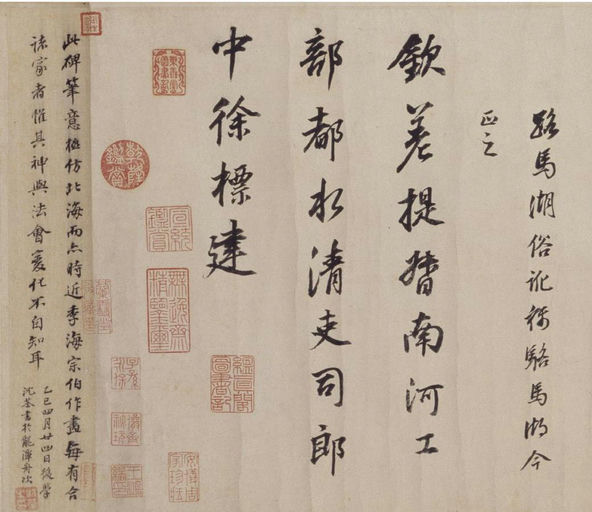 路馬湖俗訛稱駱馬湖今
正之
欽差提督南河工
部都水清吏司郎
中徐標建
此碑筆意極仿北海而亦時近季海宗伯作畫每有合
諸家者惟其神與法會變化不自知耳
乙巳四月廿四日後學
沈荃書於龍潭舟次